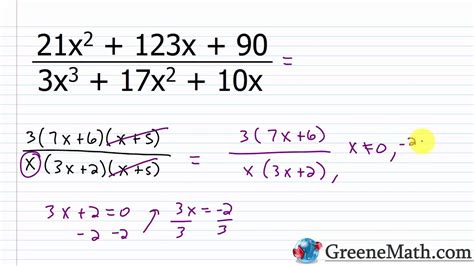 21x² + 123x + 90
3x³ + 17x² + 10x
=
3(7x+6)(x+5)
x(3x+2)(x+5)
=
3(7x+6)
x(3x+2),
x≠0, -2
3x+2=0
-2 -2
3x = -2
3 3
GreeneMath.com